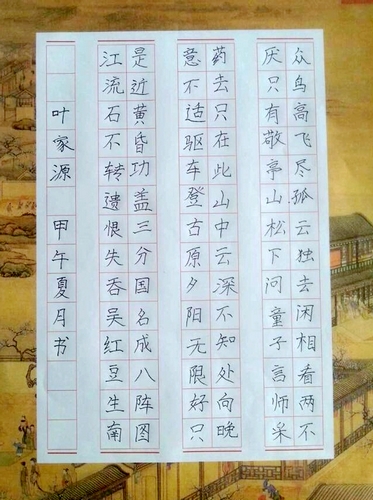 众鸟高飞尽孤云独去闲相看两不
厌只有敬亭山松下问童子言师采
药去只在此山中云深不知处向晚
意不适驱车登古原夕阳无限好只
是近黄昏功盖三分国名成八阵图
江流石不转遗恨失吞吴红豆生南
叶家源 甲午夏月书